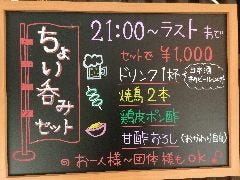 ちょい呑みセット
21:00~ラストまで
セットで ¥1,000
ドリンク1杯
焼鳥2本
鶏皮ポン酢
甘酢おろし(おかわり自由)
お一人様~団体様もOK♪